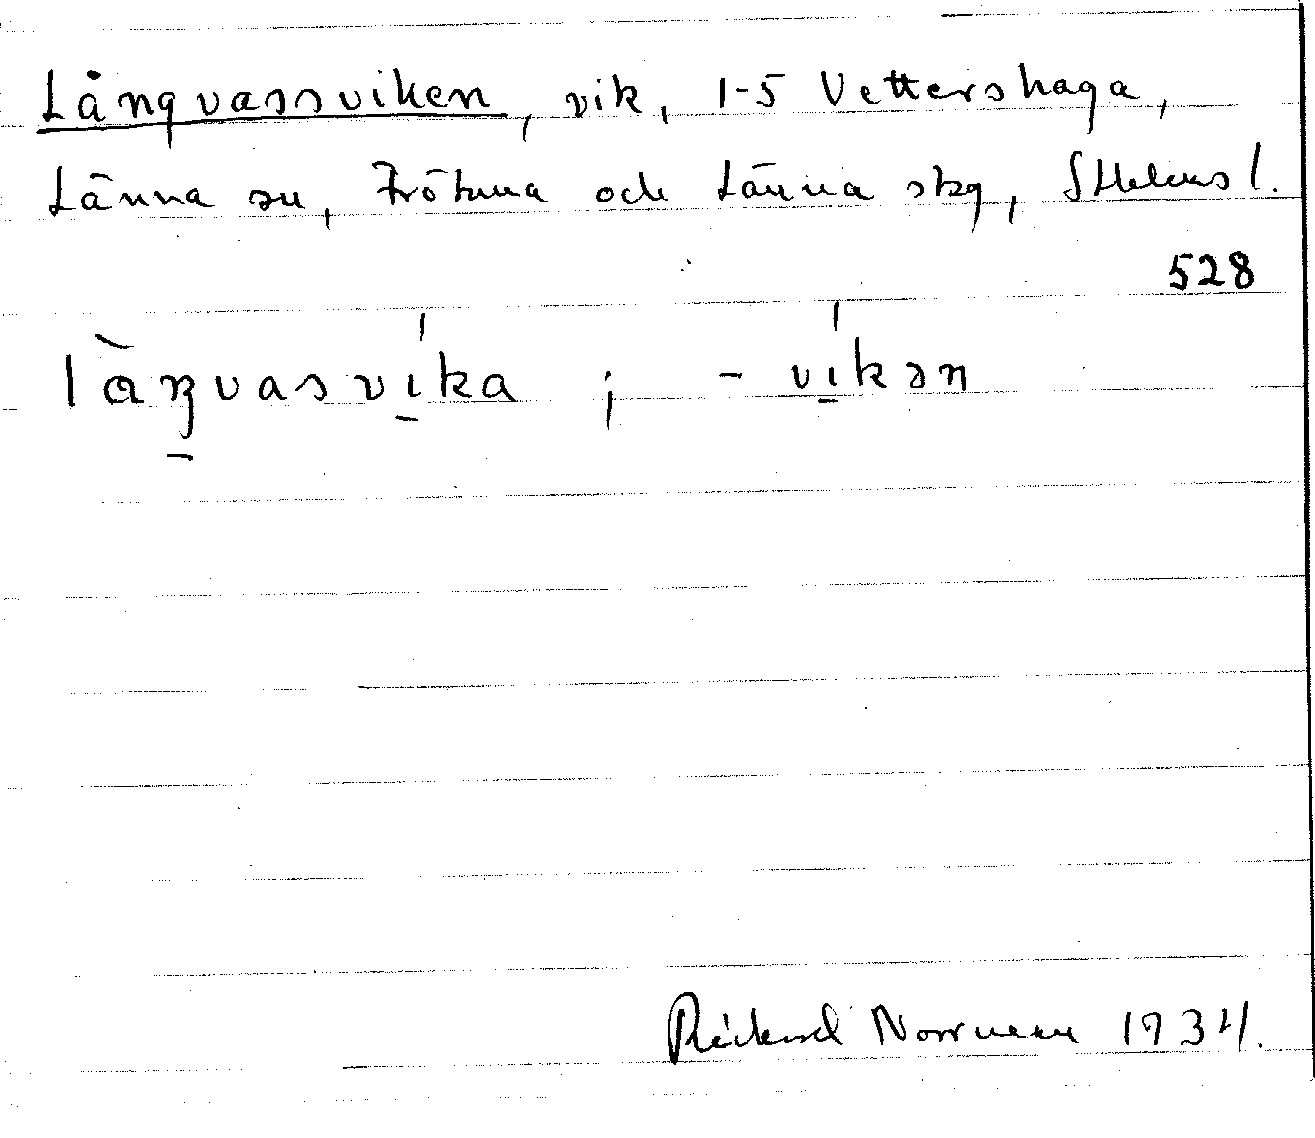 Långvassviken, vik, 1-5 Vettershaga,
Länna sn, Frötuna och Länna skg, Sthlms l.
528
là̱ŋvasvi̱ka ; - vi̱kən
Rickard Norrman 1934.